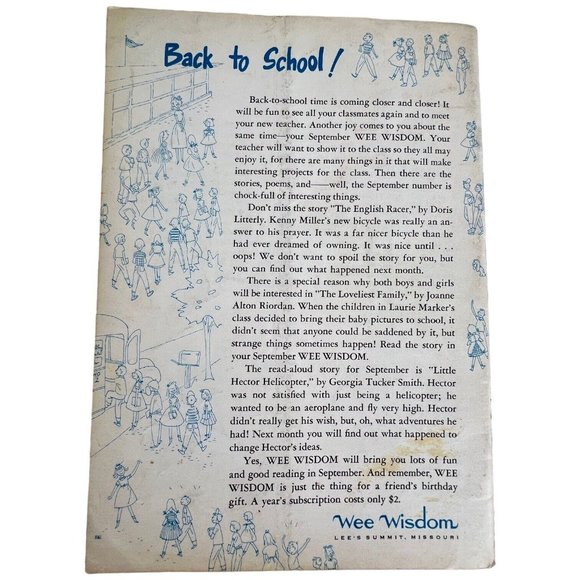 Back to School!
Back-to-school time is coming closer and closer! It
will be fun to see all your classmates again and to meet
your new teacher. Another joy comes to you about the
same time—your September WEE WISDOM. Your
teacher will want to show it to the class so they all may
enjoy it, for there are many things in it that will make
interesting projects for the class. Then there are the
stories, poems, and——well, the September number is
chock-full of interesting things.
Don't miss the story "The English Racer," by Doris
Litterly. Kenny Miller's new bicycle was really an an-
swer to his prayer. It was a far nicer bicycle than he
had ever dreamed of owning. It was nice until . . .
oops! We don't want to spoil the story for you, but
you can find out what happened next month.
There is a special reason why both boys and girls
will be interested in "The Loveliest Family," by Joanne
Alton Riordan. When the children in Laurie Marker's
class decided to bring their baby pictures to school, it
didn't seem that anyone could be saddened by it, but
strange things sometimes happen! Read the story in
your September WEE WISDOM.
The read-aloud story for September is "Little
Hector Helicopter," by Georgia Tucker Smith. Hector
was not satisfied with just being a helicopter; he
wanted to be an aeroplane and fly very high. Hector
didn't really get his wish, but, oh, what adventures he
had! Next month you will find out what happened to
change Hector's ideas.
Yes, WEE WISDOM will bring you lots of fun
and good reading in September. And remember, WEE
WISDOM is just the thing for a friend's birthday
gift. A year's subscription costs only $2.
Wee Wisdom
LEE'S SUMMIT, MISSOURI